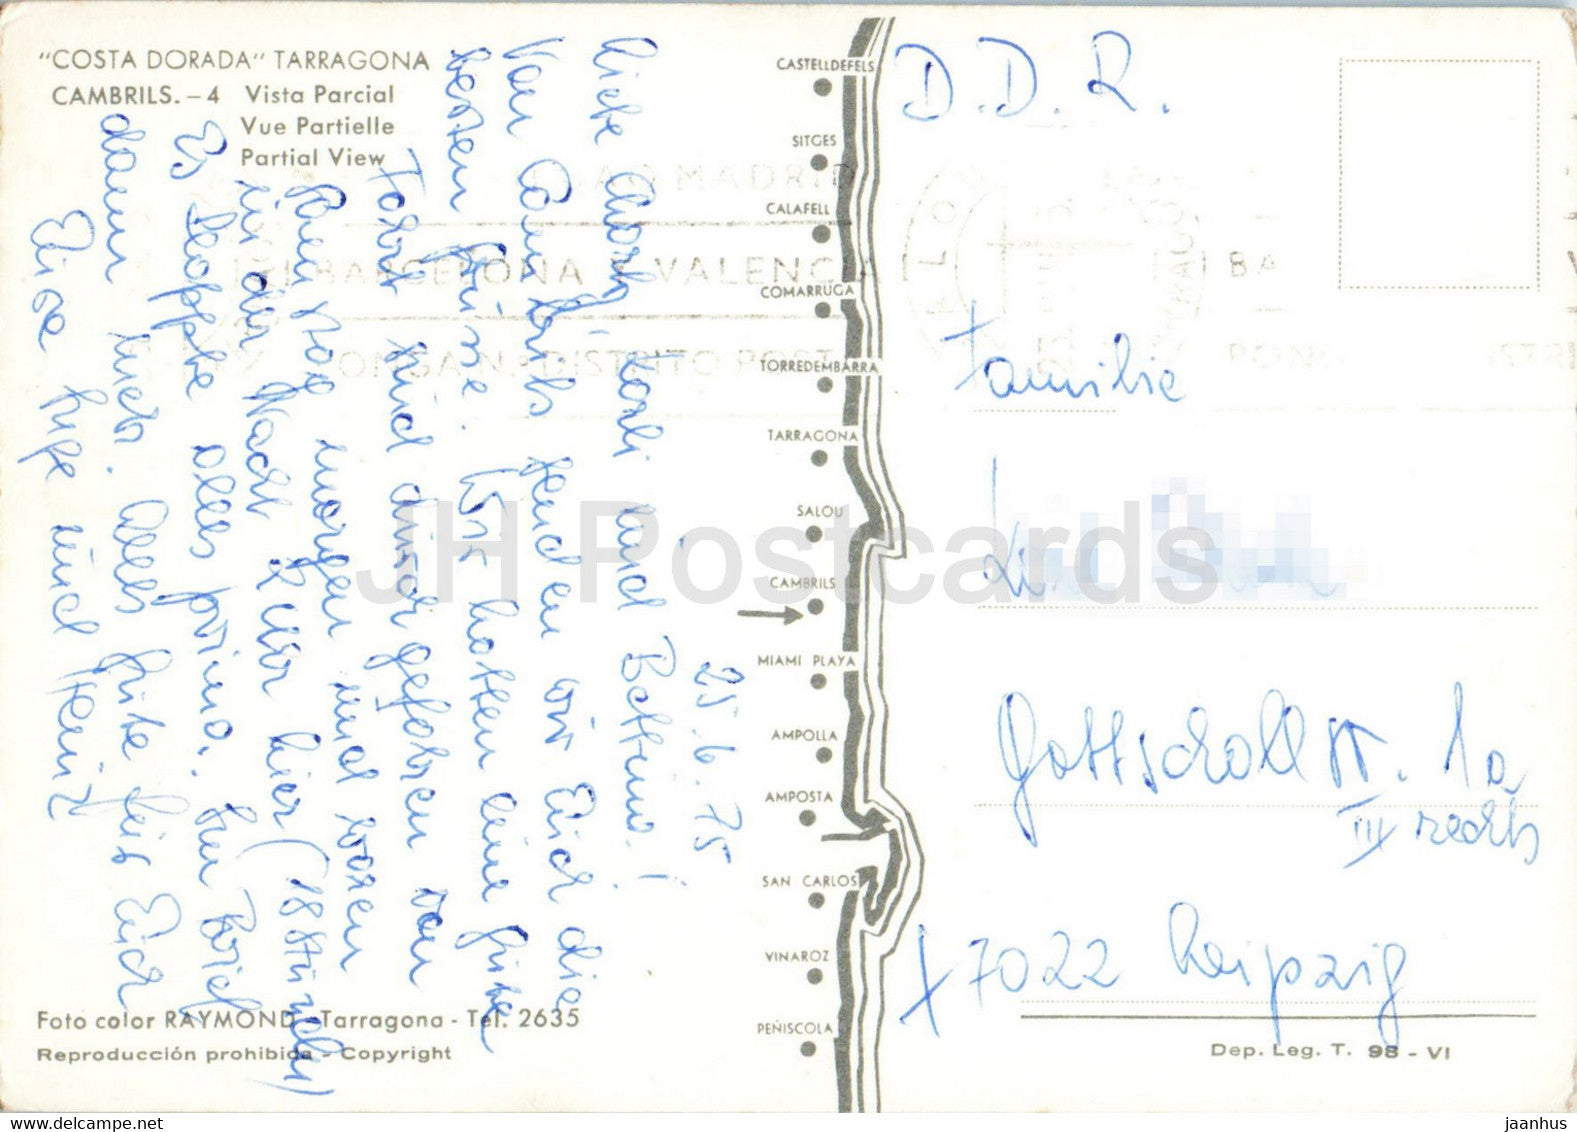 "COSTA DORADA" TARRAGONA
CAMBRILS. - 4 Vista Parcial
Vue Partielle
Partial View
25.6.75
Liebe Karli und Bettina!
Von Cambrils senden wir Euch die
besten Grüsse. Wir hatten eine gute
Fahrt sind durchgefahren von
morgen und waren
in der Nacht 2 Uhr hier (18 Stunden)
Es klappte alles prima.
dann mehr. Alles Gute für Euch
Eure und Heinz
CASTELLDEFELS
SITGES
CALAFELL
COMARRUGA
TORREDEMBARRA
TARRAGONA
SALOU
CAMBRILS
MIAMI PLAYA
AMPOLLA
AMPOSTA
SAN CARLOS
VINAROZ
PEÑISCOLA
D.D.R.
MADRID
BARCELONA VALENCIA
PONGA N.º DISTRITO POSTAL
Familie
Gottschallstr. 1a
III rechts
X 7022 Leipzig
Foto color RAYMOND - Tarragona - Tel. 2635
Reproducción prohibida - Copyright
Dep. Leg. T. 98 - VI
JH Postcards
jaanhus @ delcampe.net